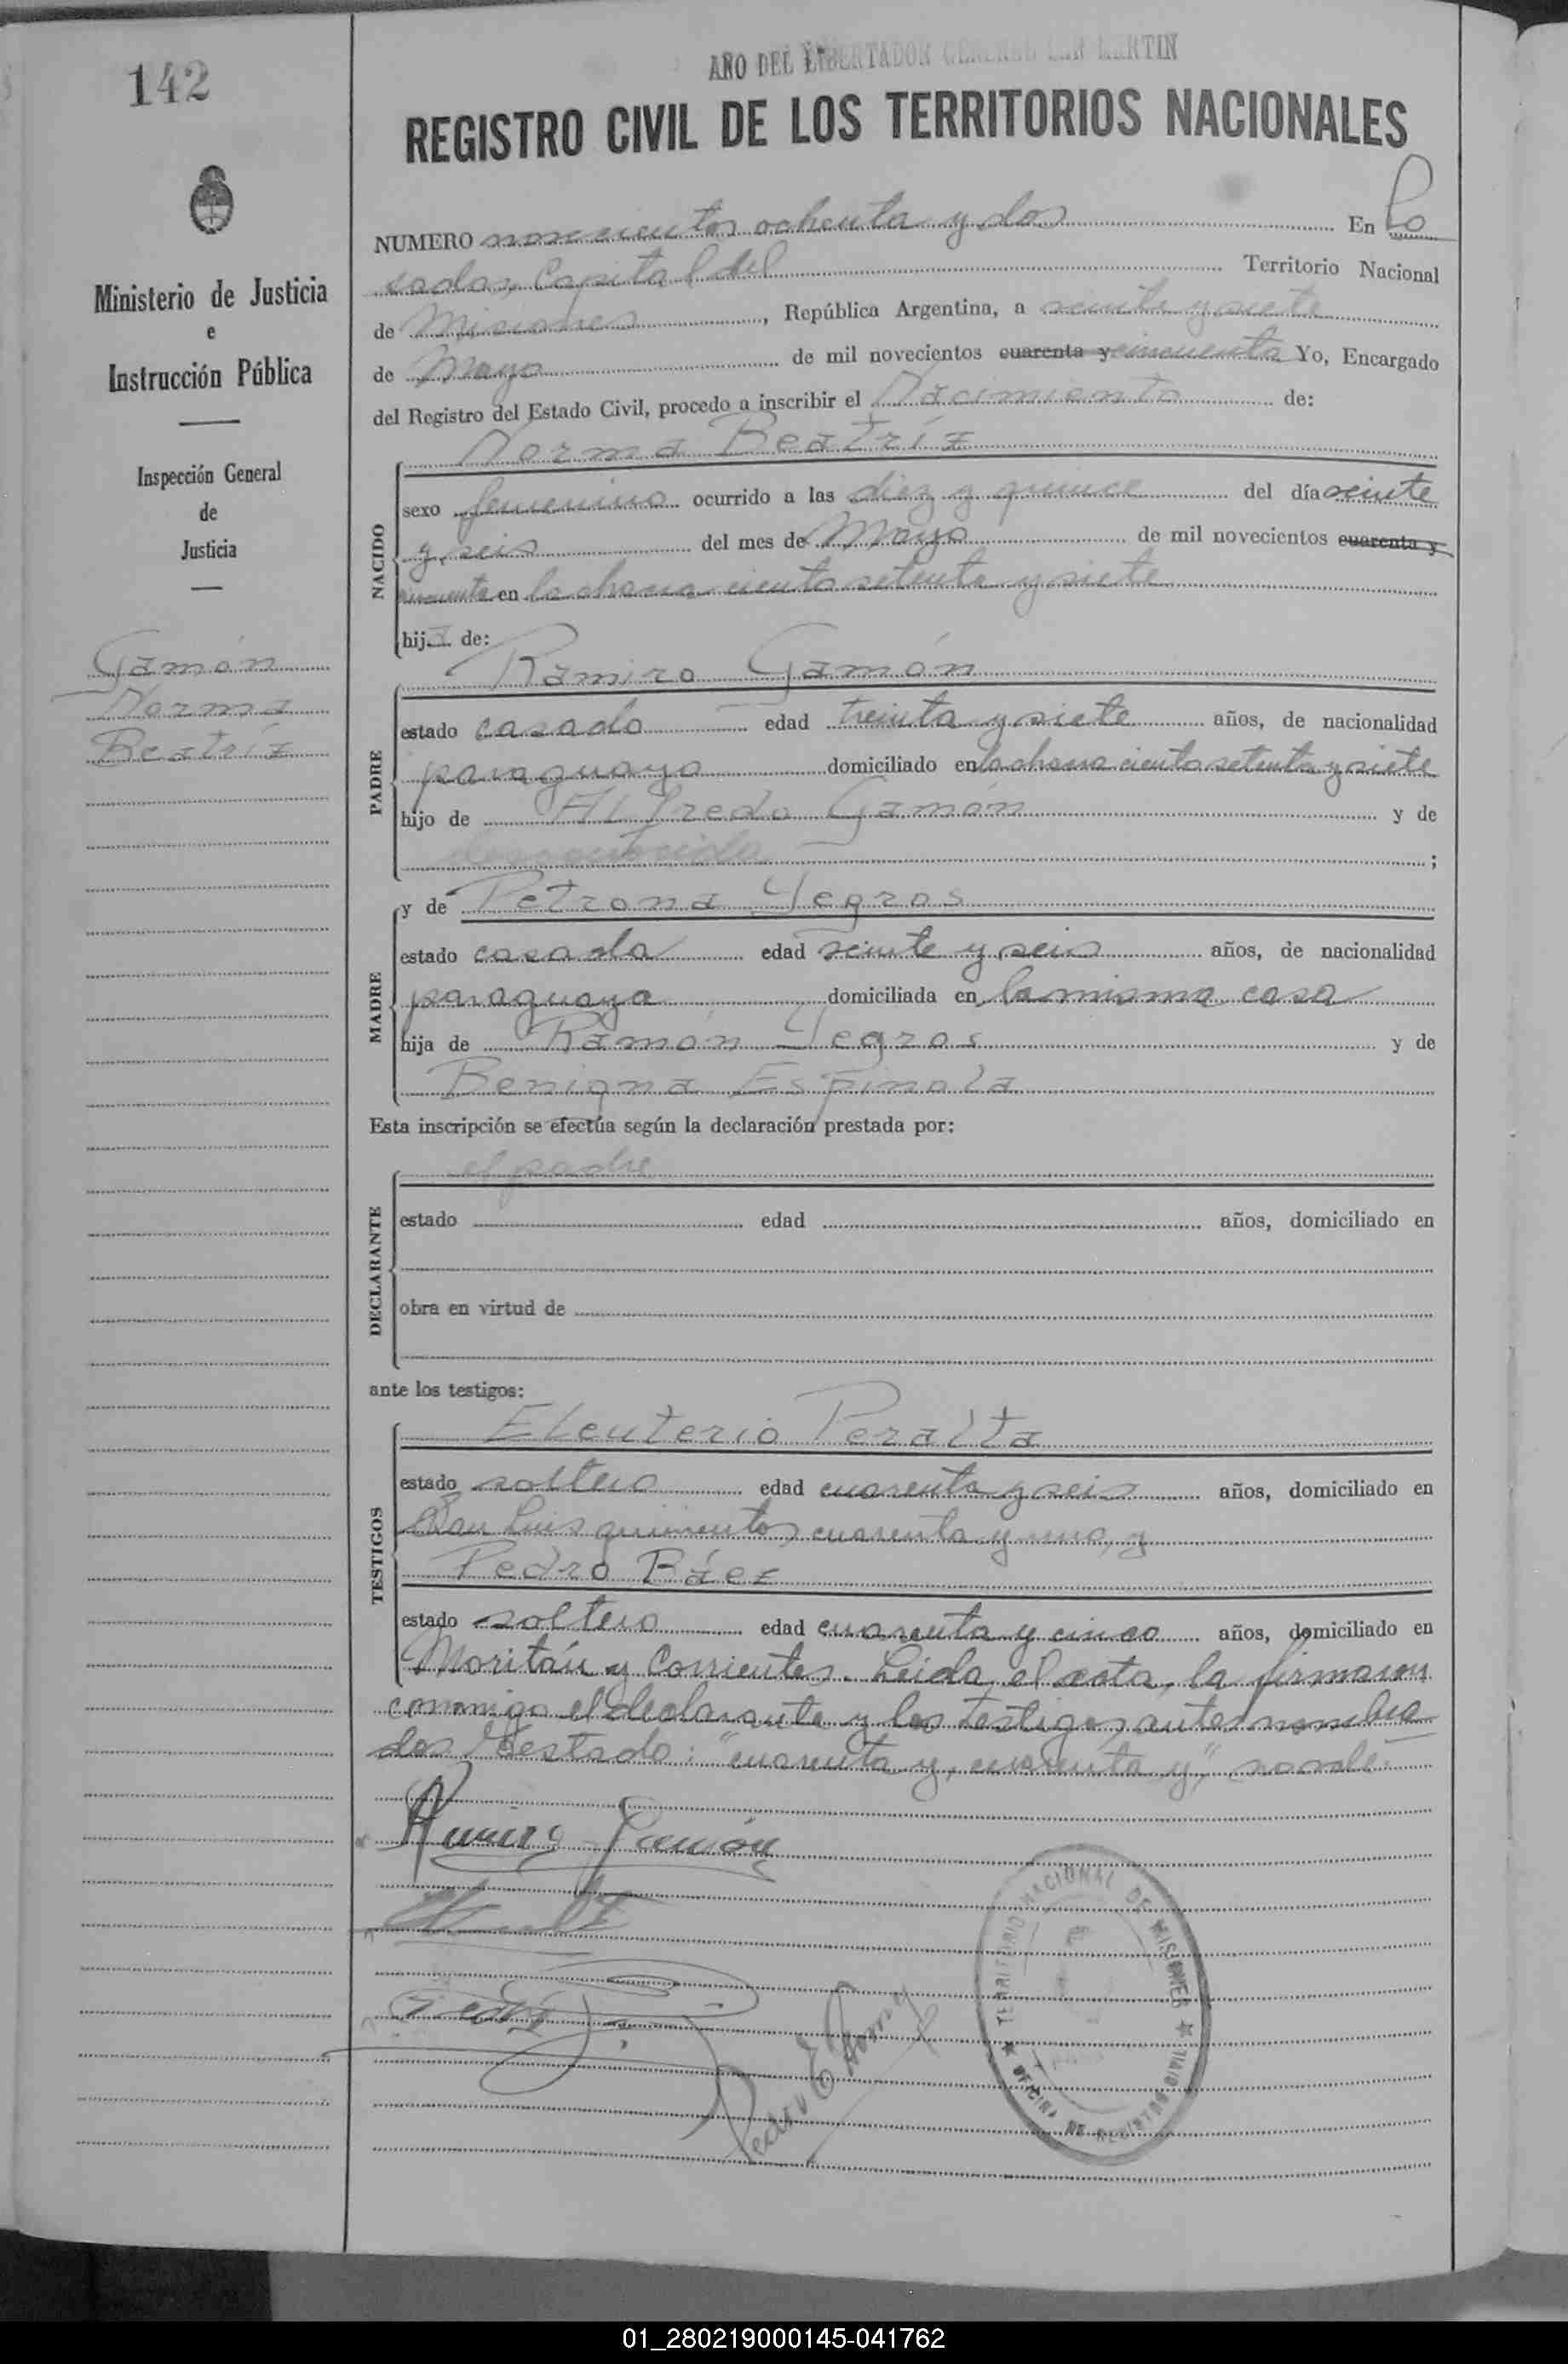 142
AÑO DEL LIBERTADOR GENERAL SAN MARTIN
REGISTRO CIVIL DE LOS TERRITORIOS NACIONALES
Ministerio de Justicia
e
Instrucción Pública
Inspección General
de
Justicia
Gamón
Norma
Beatríz
NUMERO novecientos ochenta y dos En Po
sadas, Capital del Territorio Nacional
de Misiones, República Argentina, a veinte y siete
de Mayo de mil novecientos cuarenta y cincuenta Yo, Encargado
del Registro del Estado Civil, procedo a inscribir el Nacimiento de:
NACIDO
Norma Beatríz
sexo femenino ocurrido a las diez y quince del día veinte
y seis del mes de Mayo de mil novecientos cuarenta y
cincuenta en la chacra ciento setenta y siete
hija de:
PADRE
Ramiro Gamón
estado casado edad treinta y siete años, de nacionalidad
paraguayo domiciliado en la chacra ciento setenta y siete
hijo de Alfredo Gamón y de
desconocida ;
MADRE
y de Petrona Yegros
estado casada edad veinte y seis años, de nacionalidad
paraguaya domiciliada en la misma casa
hija de Ramón Yegros y de
Benigna Espinola
Esta inscripción se efectúa según la declaración prestada por:
DECLARANTE
el padre
estado edad años, domiciliado en
obra en virtud de
ante los testigos:
TESTIGOS
Eleuterio Peralta
estado soltero edad cuarenta y seis años, domiciliado en
San Luis quinientos cuarenta y uno, y
Pedro Báez
estado soltero edad cuarenta y cinco años, domiciliado en
Moritán y Corrientes. Leida el acta, la firmaron
conmigo el declarante y los testigos antes nombra
dos Testado: "cuarenta y, cuarenta y", novale.
Ramiro Gamón
TERRITORIO NACIONAL DE MISIONES
OFICINA DE REGISTRO CIVIL
01_280219000145-041762